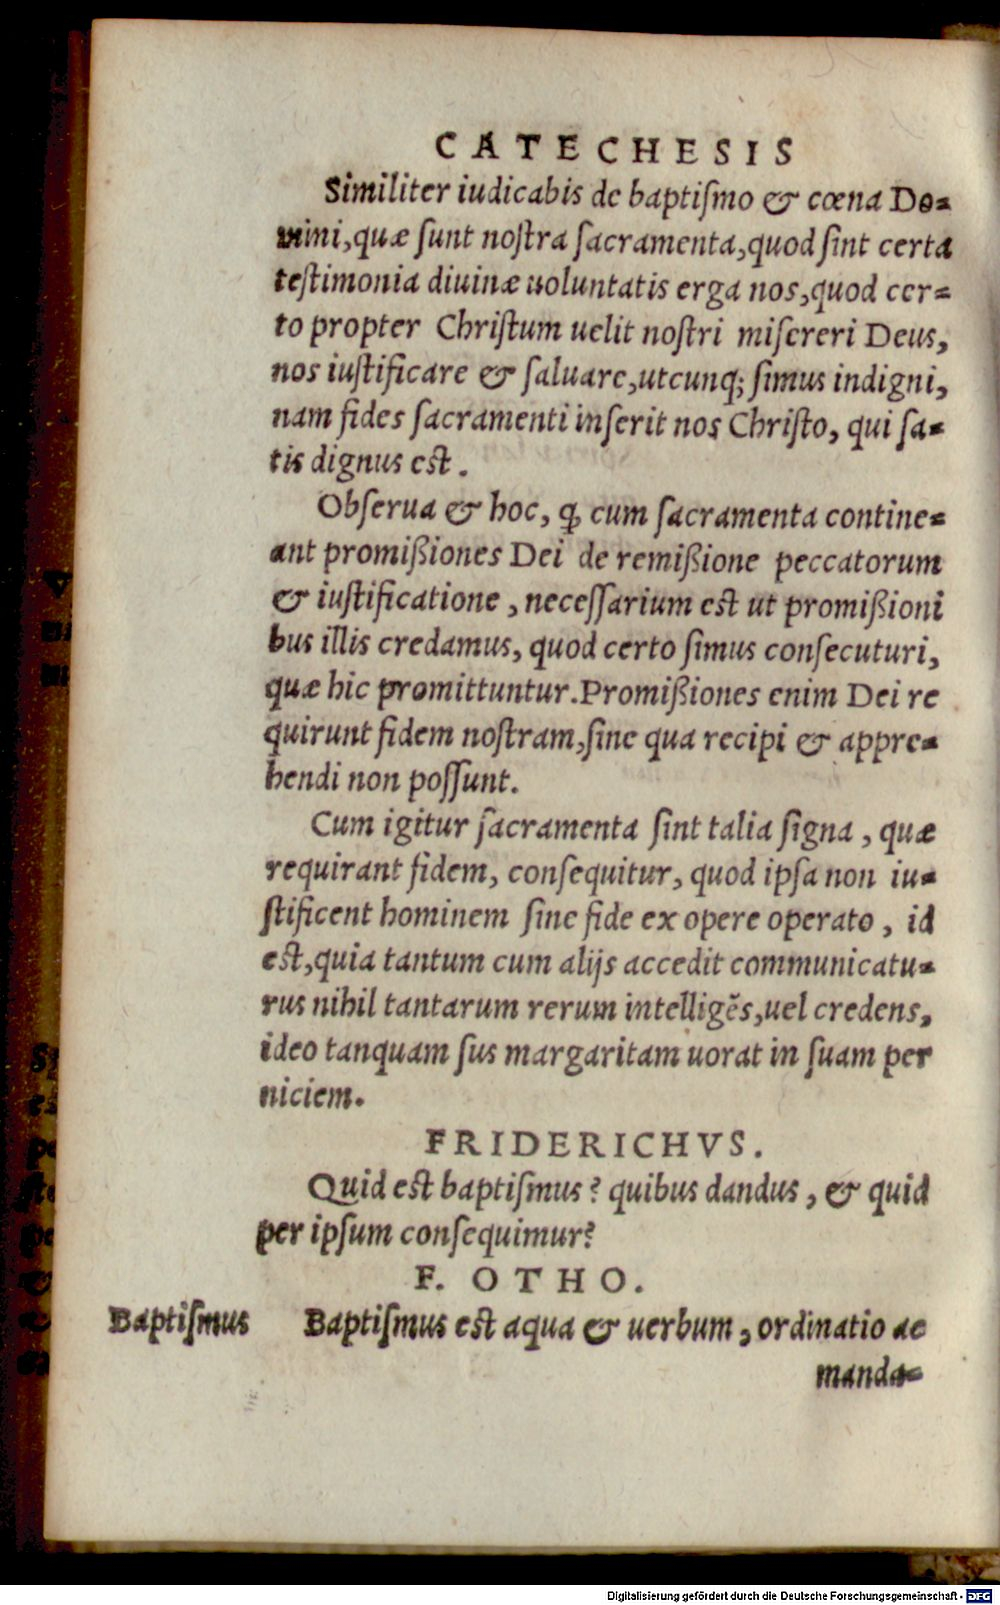 CATECHESIS
Similiter iudicabis de baptiſmo & cœna Do⸗
mini,quæ ſunt noſtra ſacramenta,quod ſint certa
teſtimonia diuinæ uoluntatis erga nos,quod cer⸗
to propter Chriſtum uelit noſtri miſereri Deus,
nos iuſtificare & ſaluare,utcunq; ſimus indigni,
nam fides ſacramenti inſerit nos Chriſto, qui ſa⸗
tis dignus eſt.
Obſerua & hoc, ꝙ cum ſacramenta contine⸗
ant promißiones Dei de remißione peccatorum
& iuſtificatione, neceſſarium eſt ut promißioni
bus illis credamus, quod certo ſimus conſecuturi,
quæ hic promittuntur.Promißiones enim Dei re
quirunt fidem noſtram,ſine qua recipi & appre⸗
hendi non poſſunt.
Cum igitur ſacramenta ſint talia ſigna, quæ
requirant fidem, conſequitur, quod ipſa non iu⸗
ſtificent hominem ſine fide ex opere operato, id
eſt,quia tantum cum alijs accedit communicatu⸗
rus nihil tantarum rerum intelligẽs,uel credens,
ideo tanquam ſus margaritam uorat in ſuam per
niciem.
FRIDERICHVS.
Quid eſt baptiſmus? quibus dandus, & quid
per ipſum conſequimur?
F. OTHO.
Baptiſmus
Baptiſmus eſt aqua & uerbum, ordinatio ac
manda⸗
Digitalisierung gefördert durch die Deutsche Forschungsgemeinschaft - DFG